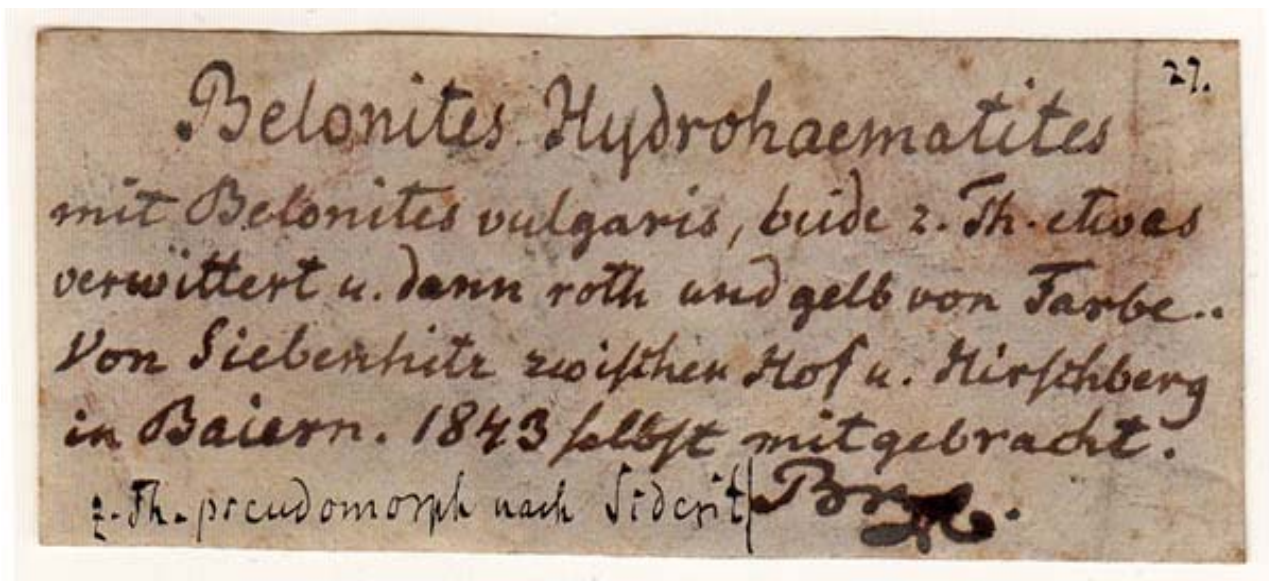 27.
Belonites Hydrohaematites
mit Belonites vulgaris, beide z. Th. etwas
verwittert u. dann roth und gelb von Farbe..
Von Siebenhitz zwischen Hof u. Hirschberg
in Baiern. 1843 selbst mitgebracht.
z. Th. pseudomorph nach Siderit